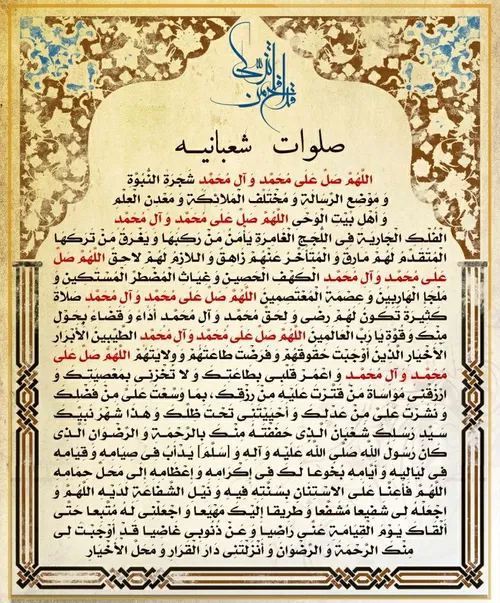 قد افلح من تزکی
صلوات شعبانیه
اللهُمَّ صَلِّ عَلی مُحَمَّد وَ آلِ مُحَمَّد شَجَرَةِ النُّبُوَّةِ
وَ مَوْضِعِ الرِّسالَةِ وَ مُخْتَلَفِ الْمَلائِکَةِ وَ مَعْدِنِ الْعِلْمِ
وَ أَهْلِ بَیْتِ الْوَحْیِ اللهُمَّ صَلِّ عَلی مُحَمَّد وَ آلِ مُحَمَّد
الْفُلْکِ الْجارِیَةِ فِی اللُّجَجِ الْغامِرَةِ یَأْمَنُ مَنْ رَکِبَها وَ یَغْرَقُ مَنْ تَرَکَهَا
الْمُتَقَدِّمُ لَهُمْ مارِقٌ وَ الْمُتَأَخِّرُ عَنْهُمْ زاهِقٌ وَ اللازِمُ لَهُمْ لاحِقٌ اللهُمَّ صَلِّ
عَلی مُحَمَّد وَ آلِ مُحَمَّد الْکَهْفِ الْحَصِینِ وَ غِیاثِ الْمُضْطَرِّ الْمُسْتَکِینِ وَ
مَلْجَإِ الْهارِبِینَ وَ عِصْمَةِ الْمُعْتَصِمِینَ اللهُمَّ صَلِّ عَلی مُحَمَّد وَ آلِ مُحَمَّد صَلاةً
کَثِیرَةً تَکُونُ لَهُمْ رِضًی وَ لِحَقِّ مُحَمَّد وَ آلِ مُحَمَّد أَداءً وَ قَضاءً بِحَوْلٍ
مِنْکَ وَ قُوَّةٍ یَا رَبَّ الْعالَمِینَ اللهُمَّ صَلِّ عَلی مُحَمَّد وَ آلِ مُحَمَّد الطَّیِّبِینَ الْأَبْرارِ
الْأَخْیارِ الَّذِینَ أَوْجَبْتَ حُقُوقَهُمْ وَ فَرَضْتَ طاعَتَهُمْ وَ وِلایَتَهُمْ اللهُمَّ صَلِّ عَلی
مُحَمَّد وَ آلِ مُحَمَّد وَ اعْمُرْ قَلْبِی بِطاعَتِکَ وَ لا تُخْزِنِی بِمَعْصِیَتِکَ وَ
ارْزُقْنِی مُوَاساةَ مَنْ قَتَّرْتَ عَلَیْهِ مِنْ رِزْقِکَ، بِمَا وَسَّعْتَ عَلَیَّ مِنْ فَضْلِکَ
وَ نَشَرْتَ عَلَیَّ مِنْ عَدْلِکَ وَ أَحْیَیْتَنِی تَحْتَ ظِلِّکَ وَ هذا شَهْرُ نَبِیِّکَ
سَیِّدِ رُسُلِکَ شَعْبانُ الَّذِی حَفَفْتَهُ مِنْکَ بِالرَّحْمَةِ وَ الرِّضْوانِ الَّذِی
کانَ رَسُولُ اللهِ صَلَّی اللهُ عَلَیْهِ وَ آلِهِ وَ [سَلَّمَ] یَدْأَبُ فِی صِیامِهِ وَ قِیامِهِ
فِی لَیالِیهِ وَ أَیَّامِهِ بُخُوعاً لَکَ فِی إِکْرامِهِ وَ إِعْظامِهِ إِلی مَحَلِّ حِمامِهِ
اللهُمَّ فَأَعِنَّا عَلَی الاسْتِنانِ بِسُنَّتِهِ فِیهِ وَ نَیْلِ الشَّفاعَةِ لَدَیْهِ اللهُمَّ وَ
اجْعَلْهُ لِی شَفِیعاً مُشَفَّعاً وَ طَرِیقاً إِلَیْکَ مَهْیَعاً وَ اجْعَلْنِی لَهُ مُتَّبِعاً حَتَّی
أَلْقاکَ یَوْمَ الْقِیامَةِ عَنِّی راضِیاً وَ عَنْ ذُنُوبِی غاضِیاً قَدْ أَوْجَبْتَ لِی
مِنْکَ الرَّحْمَةَ وَ الرِّضْوانَ وَ أَنْزَلْتَنِی دارَ الْقَرارِ وَ مَحَلَّ الْأَخْیارِ